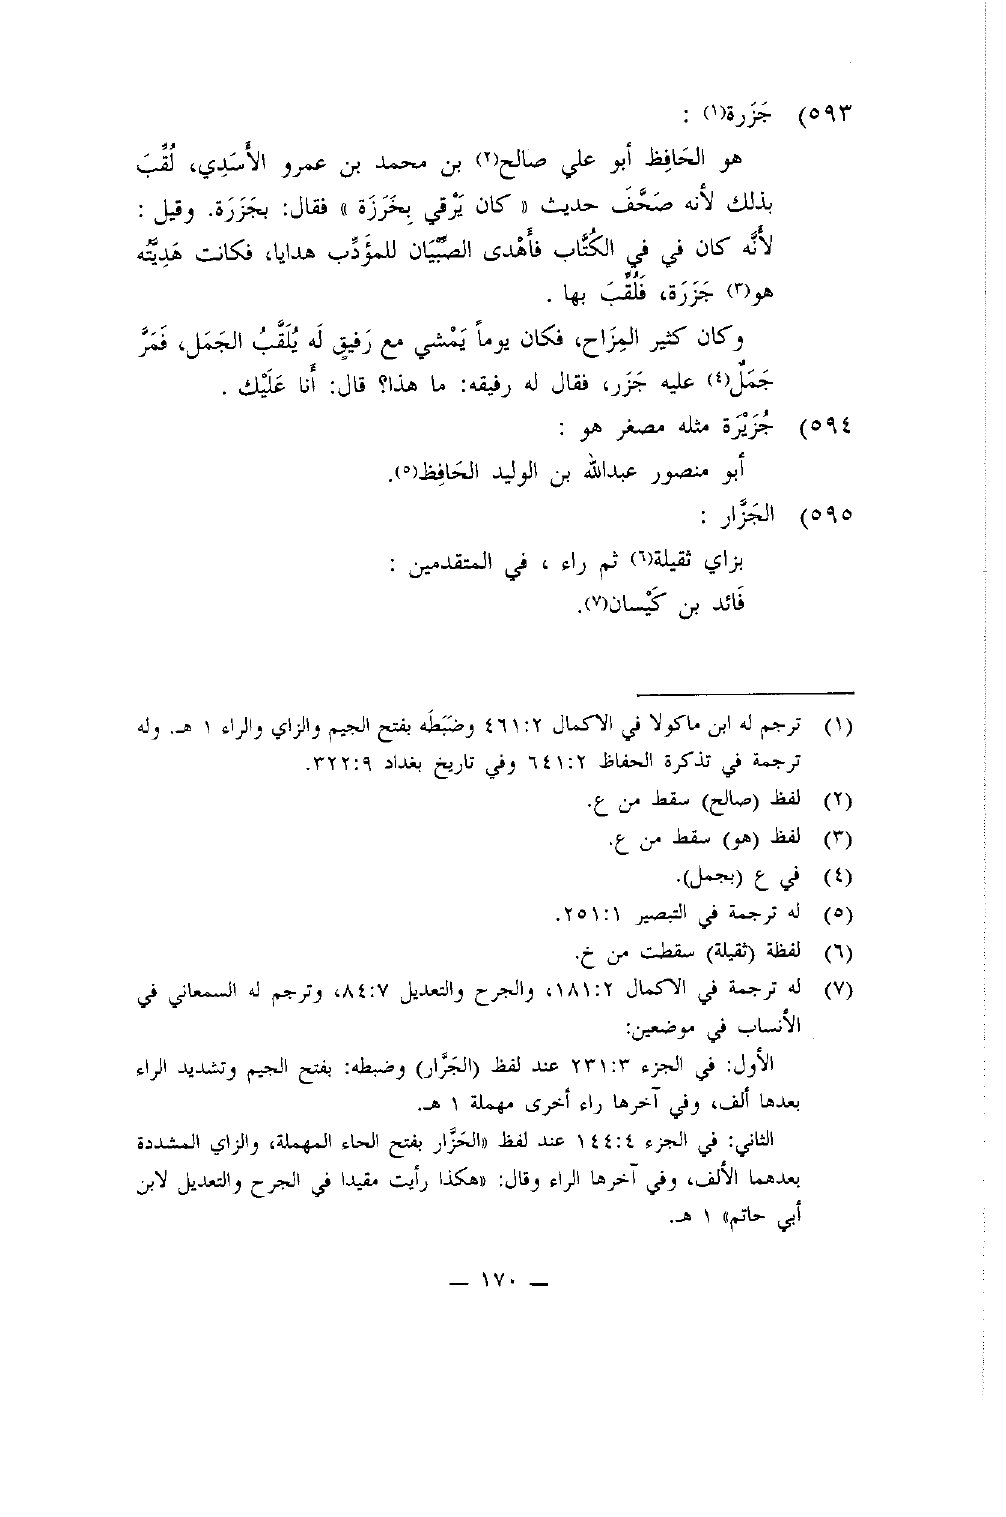 ٥٩٣) جَزَرة(١) :
هو الحَافِظ أبو علي صالح(٢) بن محمد بن عمرو الأسَدِي، لُقِّبَ
بذلك لأنه صَحَّفَ حديث « كان يَرْقي بِخَرَزَة » فقال: بجَزَرَة. وقيل :
لأنَّه كان في في الكُتَّاب فأَهْدى الصِّبْيَان للمؤَدِّب هدايا، فكانت هَدِيَّته
هو(٣) جَزَرَة، فَلُقِّبَ بها .
وكان كثير المِزَاح، فكان يوماً يَمْشي مع رَفيقٍ لَه يُلَقَّبُ الجَمَل، فَمَرَّ
جَمَلٌ(٤) عليه جَزَر، فقال له رفيقه: ما هذا؟ قال: أَنا عَلَيْك .
٥٩٤) جُزَيْرَة مثله مصغر هو :
أبو منصور عبدالله بن الوليد الحَافِظ(٥).
٥٩٥) الجَزَّار :
بزاي ثقيلة(٦) ثم راء ، في المتقدمين :
فَائد بن كَيْسان(٧).
(١) ترجم له ابن ماكولا في الاكمال ٤٦١:٢ وضَبَطَه بفتح الجيم والزاي والراء ١ هـ. وله
ترجمة في تذكرة الحفاظ ٦٤١:٢ وفي تاريخ بغداد ٣٢٢:٩.
(٢) لفظ (صالح) سقط من ع.
(٣) لفظ (هو) سقط من ع.
(٤) في ع (بجمل).
(٥) له ترجمة في التبصير ٢٥١:١.
(٦) لفظة (ثقيلة) سقطت من خ.
(٧) له ترجمة في الاكمال ١٨١:٢، والجرح والتعديل ٨٤:٧، وترجم له السمعاني في
الأنساب في موضعين:
الأول: في الجزء ٢٣١:٣ عند لفظ (الجَرَّار) وضبطه: بفتح الجيم وتشديد الراء
بعدها ألف، وفي آخرها راء أخرى مهملة ١ هـ.
الثاني: في الجزء ١٤٤:٤ عند لفظ «الحَزَّار بفتح الحاء المهملة، والزاي المشددة
بعدهما الألف، وفي آخرها الراء وقال: «هكذا رأيت مقيدا في الجرح والتعديل لابن
أبي حاتم» ١ هـ.
— ١٧٠ —